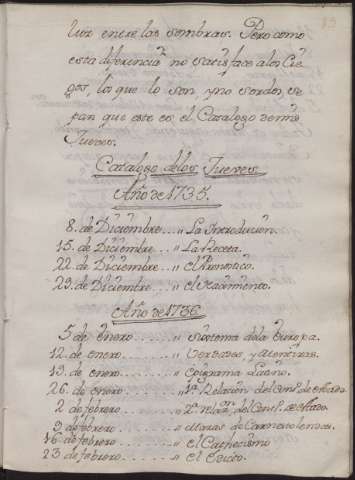 luz entre las sombras. Pero como
esta diferencia no satisface a los Cie
gos, los que lo son, y no sordos, se
pan que este es el Catalogo de mis
Jueves.
Catalogo de los Jueves
Año de 1735.
8. de Diciembre... „ La Introduccion.
15. de Diciembre... „ La Receta.
22. de Diciembre.. „ el Pronostico.
29. de Diciembre.. „ el Nacimiento.
Año de 1736
5 de enero....... „ Systema de la Europa.
12. de enero....... „ Verdades, y Mentiras.
19. de enero....... „ Epigrama Latino.
26. de enero....... „ 1ª Relacion del Cons.º de estado.
2 de febrero..... „ 2ª Relaz.n del Cons.º de estado.
9 de febrero....... „ de
16 de febrero...... „ el Cathecismo
23 de febrero...... „ el